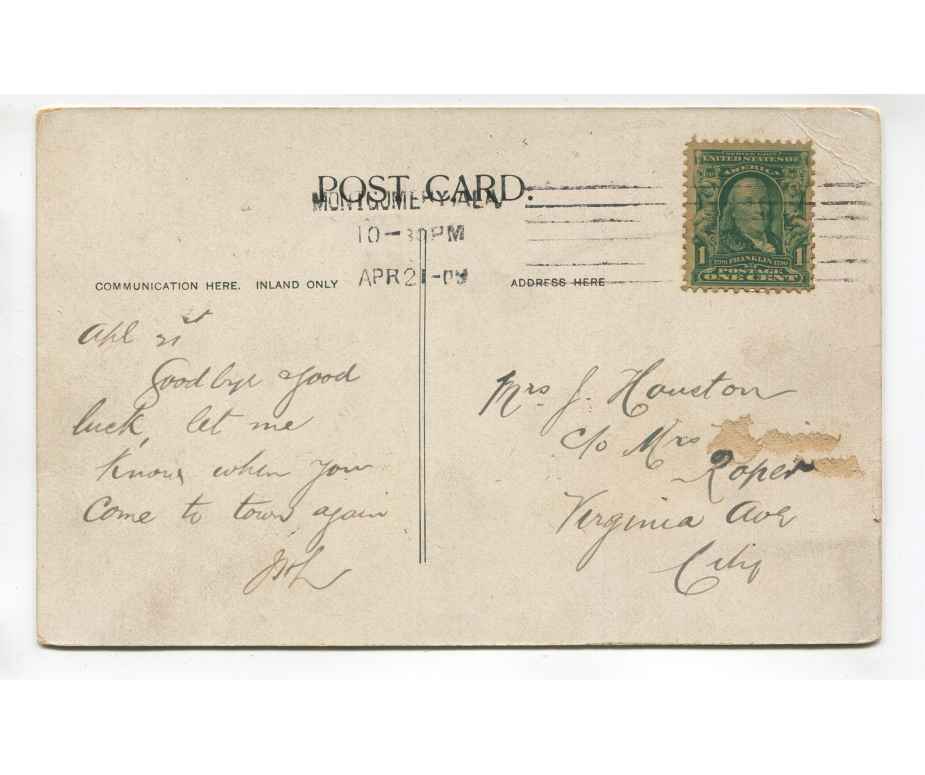 POST CARD.
MONTGOMERY, ALA
10-30PM
APR21-09
COMMUNICATION HERE. INLAND ONLY
ADDRESS HERE
UNITED STATES OF
AMERICA
FRANKLIN
1 1
POSTAGE
ONE CENT
Apl 21st
Goodbye good
luck, let me
know when you
come to town again
Mrs J. Houston
c/o Mrs
Roper
Virginia Ave
City